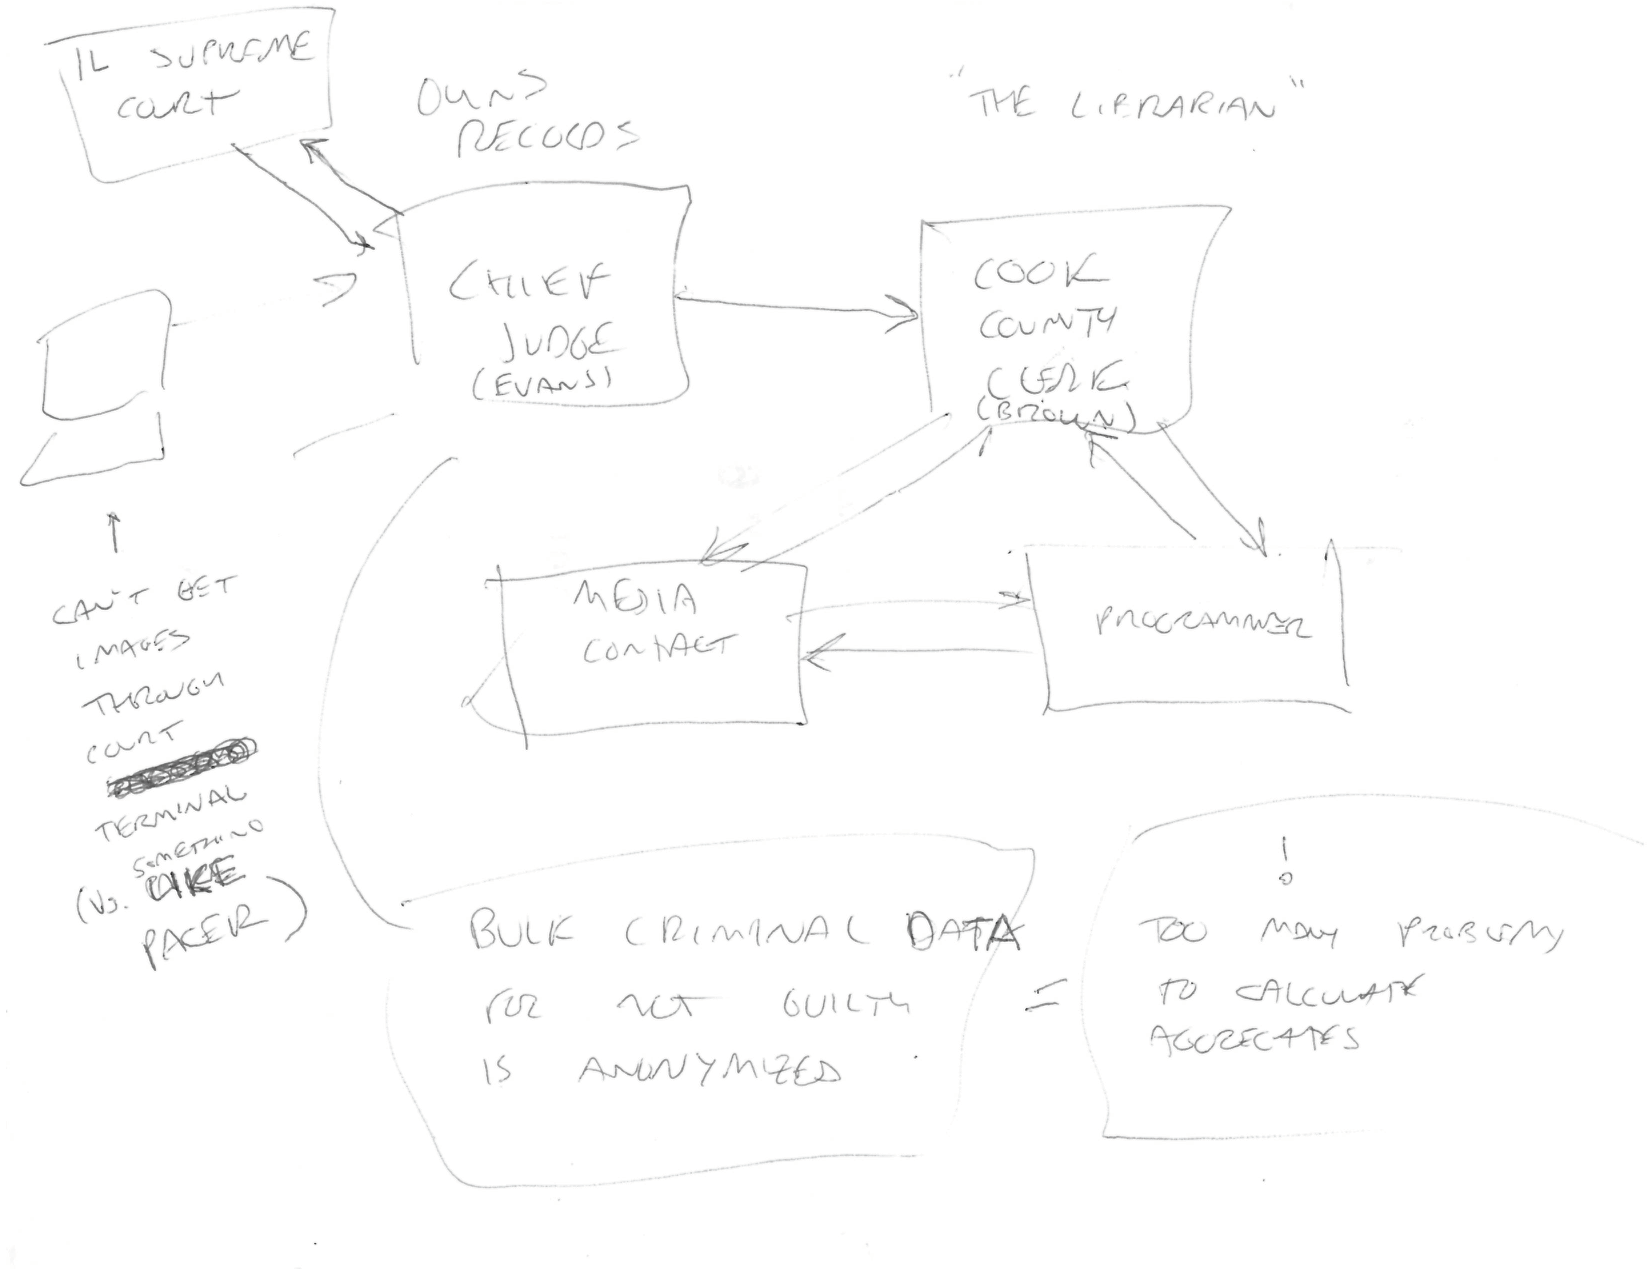 IL SUPREME
COURT
OWNS
RECORDS
"THE LIBRARIAN"
CHIEF
JUDGE
(EVANS)
COOK
COUNTY
CLERK
(BROWN)
MEDIA
CONTACT
PROGRAMMER
CAN'T GET
IMAGES
THROUGH
COURT
TERMINAL
SOMETHING
(VS. LIKE
PACER)
BULK CRIMINAL DATA
FOR NOT GUILTY
IS ANONYMIZED
=
!
TOO MANY PROBLEMS
TO CALCULATE
AGGREGATES